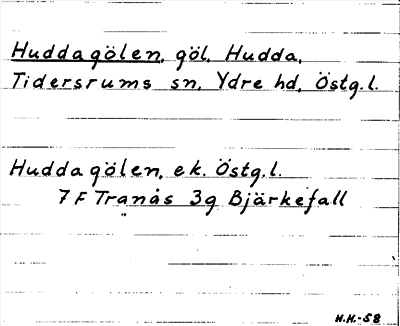 Huddagölen, göl, Hudda,
Tidersrums sn, Ydre hd, Östg.l.
Huddagölen, ek. Östg.l.
7 F Tranås 3g Bjärkefall
H.H.-58